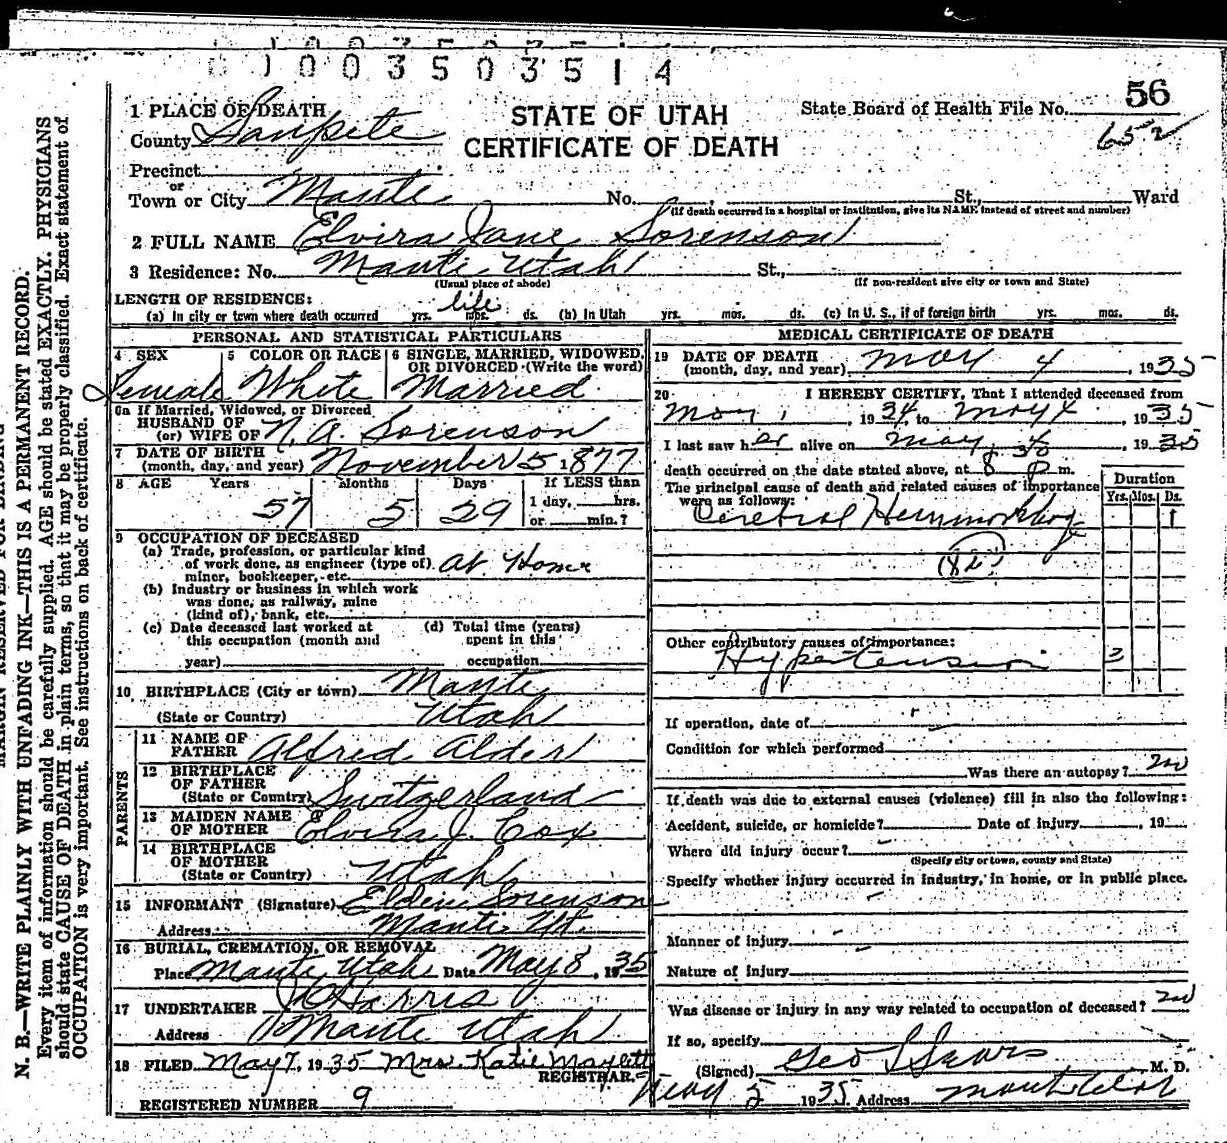 1003503514
56
1 PLACE OF DEATH
STATE OF UTAH
State Board of Health File No.
652
County Sanpete
CERTIFICATE OF DEATH
Precinct
or
Town or City Manti No. St., Ward
(If death occurred in a hospital or institution, give its NAME instead of street and number)
2 FULL NAME Elvira Jane Sorenson
3 Residence: No. Manti Utah St.,
(Usual place of abode) (If non-resident give city or town and State)
LENGTH OF RESIDENCE:
(a) In city or town where death occurred yrs. life mos. ds. (b) In Utah yrs. mos. ds. (c) In U. S., if of foreign birth yrs. mos. ds.
PERSONAL AND STATISTICAL PARTICULARS
4 SEX
Female
5 COLOR OR RACE
White
6 SINGLE, MARRIED, WIDOWED, OR DIVORCED (Write the word)
Married
6a If Married, Widowed, or Divorced
HUSBAND OF
(or) WIFE OF N. A. Sorenson
7 DATE OF BIRTH
(month, day, and year) November 5 1877
8 AGE Years Months Days If LESS than
57 5 29 1 day, hrs.
or min.?
9 OCCUPATION OF DECEASED
(a) Trade, profession, or particular kind
of work done, as engineer (type of) At Home
miner, bookkeeper, etc.
(b) Industry or business in which work
was done, as railway, mine
(kind of), bank, etc.
(c) Date deceased last worked at (d) Total time (years)
this occupation (month and spent in this
year) occupation
10 BIRTHPLACE (City or town) Manti
(State or Country) Utah
PARENTS
11 NAME OF
FATHER Alfred Alder
12 BIRTHPLACE
OF FATHER
(State or Country) Switzerland
13 MAIDEN NAME
OF MOTHER Elvira J. Cox
14 BIRTHPLACE
OF MOTHER
(State or Country) Utah
15 INFORMANT (Signature) Elden Sorenson
Address Manti Ut.
16 BURIAL, CREMATION, OR REMOVAL
Place Manti Utah Date May 8, 1935
17 UNDERTAKER Harris
Address Manti Utah
18 FILED May 7, 1935 Mrs. Katie Maylett
REGISTRAR.
REGISTERED NUMBER 9
MEDICAL CERTIFICATE OF DEATH
19 DATE OF DEATH
(month, day, and year) May 4, 1935
20 I HEREBY CERTIFY, That I attended deceased from
May 1, 1934, to May 4, 1935
I last saw her alive on May 1935
death occurred on the date stated above, at 8 P m.
The principal cause of death and related causes of importance
were as follows:
Duration
Yrs. Mos. Ds.
Cerebral Hemmorhage 1
(82)
Other contributory causes of importance:
Hypertension 3
If operation, date of
Condition for which performed
Was there an autopsy? no
If death was due to external causes (violence) fill in also the following:
Accident, suicide, or homicide? Date of injury , 19
Where did injury occur?
(Specify city or town, county and State)
Specify whether injury occurred in industry, in home, or in public place.
Manner of injury
Nature of injury
Was disease or injury in any way related to occupation of deceased? no
If so, specify
(Signed) Geo L Sears M. D.
May 5 1935 Address Manti Utah
MARGIN RESERVED FOR BINDING
N. B.—WRITE PLAINLY WITH UNFADING INK—THIS IS A PERMANENT RECORD.
Every item of information should be carefully supplied. AGE should be stated EXACTLY. PHYSICIANS
should state CAUSE OF DEATH in plain terms, so that it may be properly classified. Exact statement of
OCCUPATION is very important. See instructions on back of certificate.